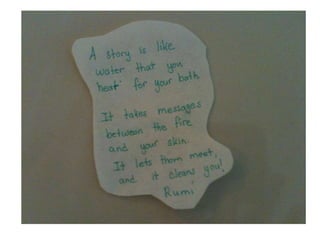 A story is like
water that you
heat for your bath
It takes messages
between the fire
and your skin.
It lets them meet,
and it cleans you!
Rumi